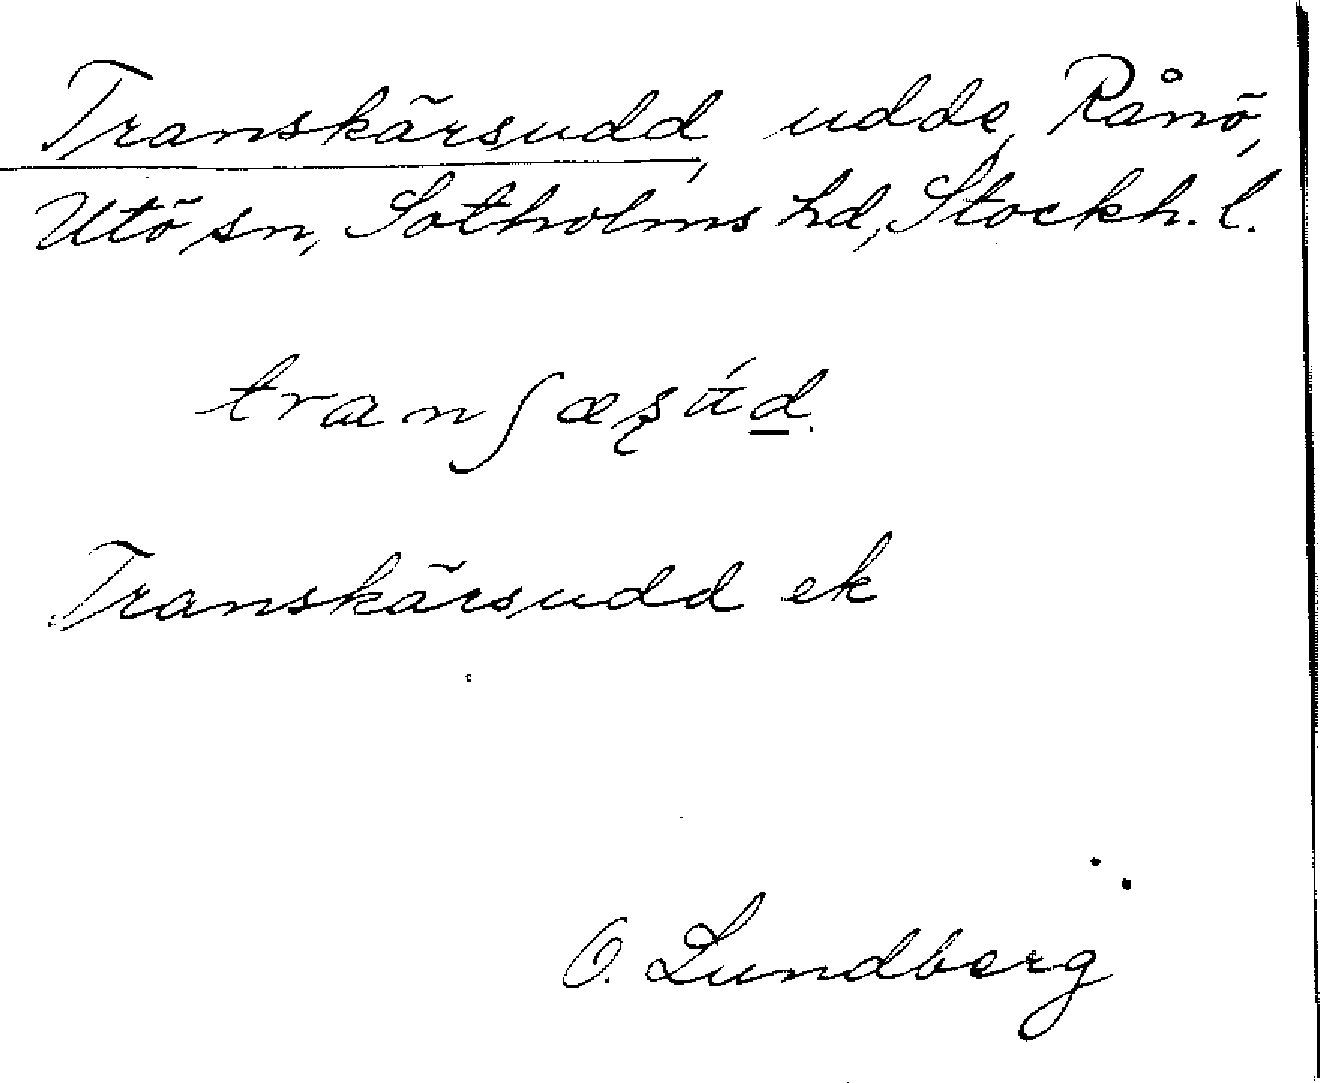 Transkärsudd, udde, Rånö,
Utö sn, Sotholms hd, Stockh. l.
tranʃæʂúd.
Transkärsudd ek
O. Lundberg